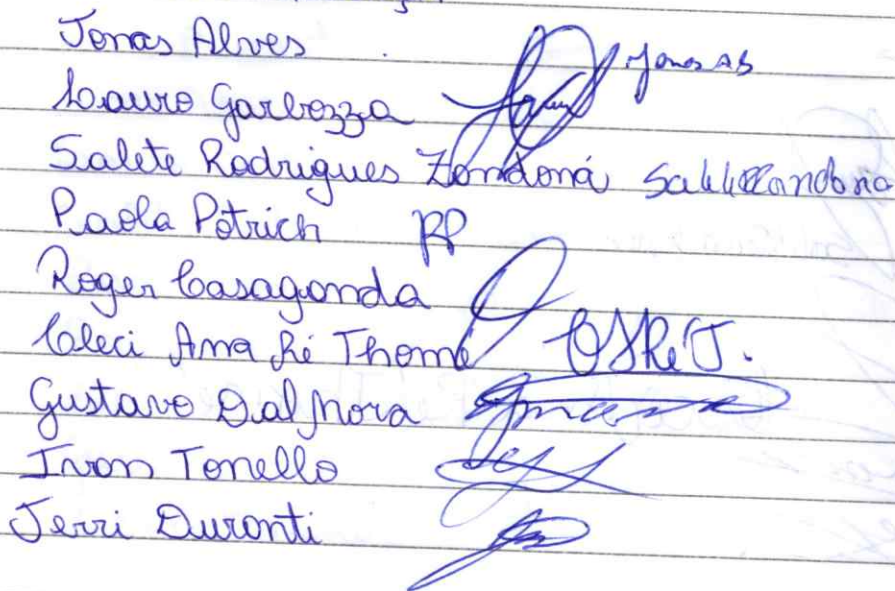 Jonas Alves Jonas AS
Lauro Garbozza
Salete Rodrigues Zondoná
Paola Potrich PP
Roger Casagonda
Cleci Ana Ré Thomé
Gustavo Dal Mora
Ivon Tonello
Jerri Duronti